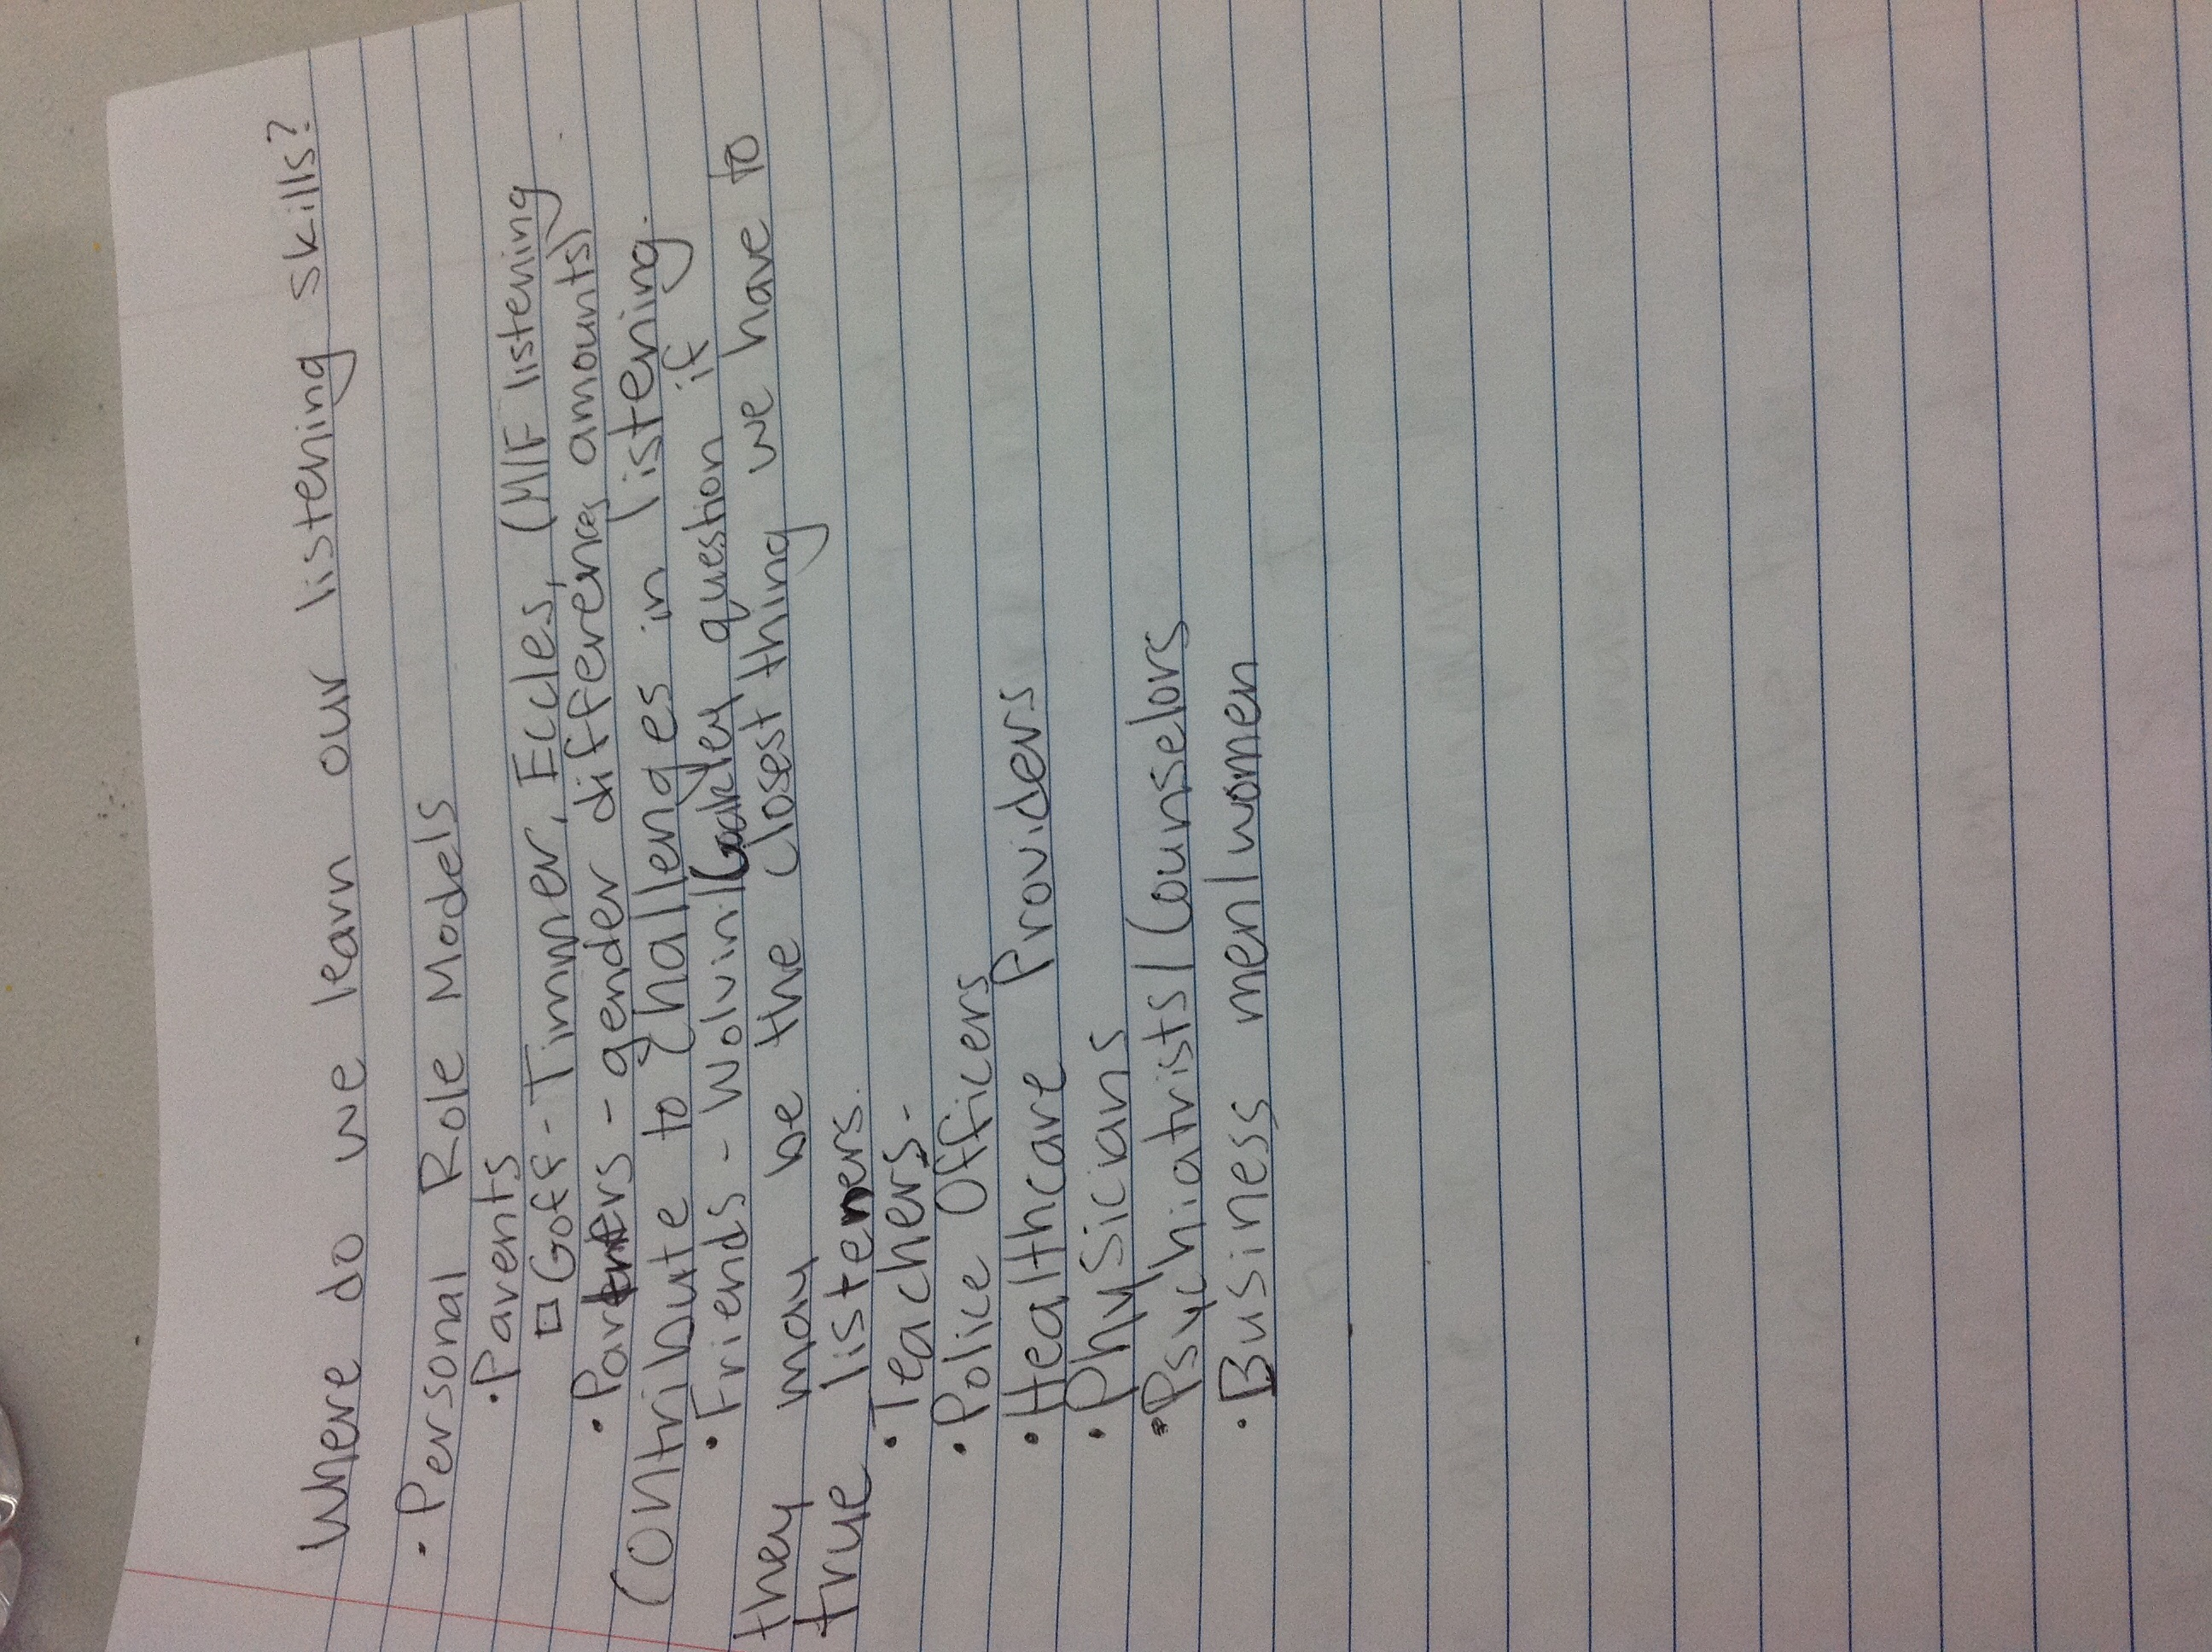 Where do we learn our listening skills?
• Personal Role Models
• Parents
□ Goff-Timmer, Eccles, (M/F listening
• Partners - gender differences amounts)
contribute to challenges in listening.
• Friends - Wolvin/Coakley question if
they may be the closest thing we have to
true listeners.
• Teachers -
• Police Officers
• Healthcare Providers
• Physicians
• Psychiatrists/Counselors
• Business men/women